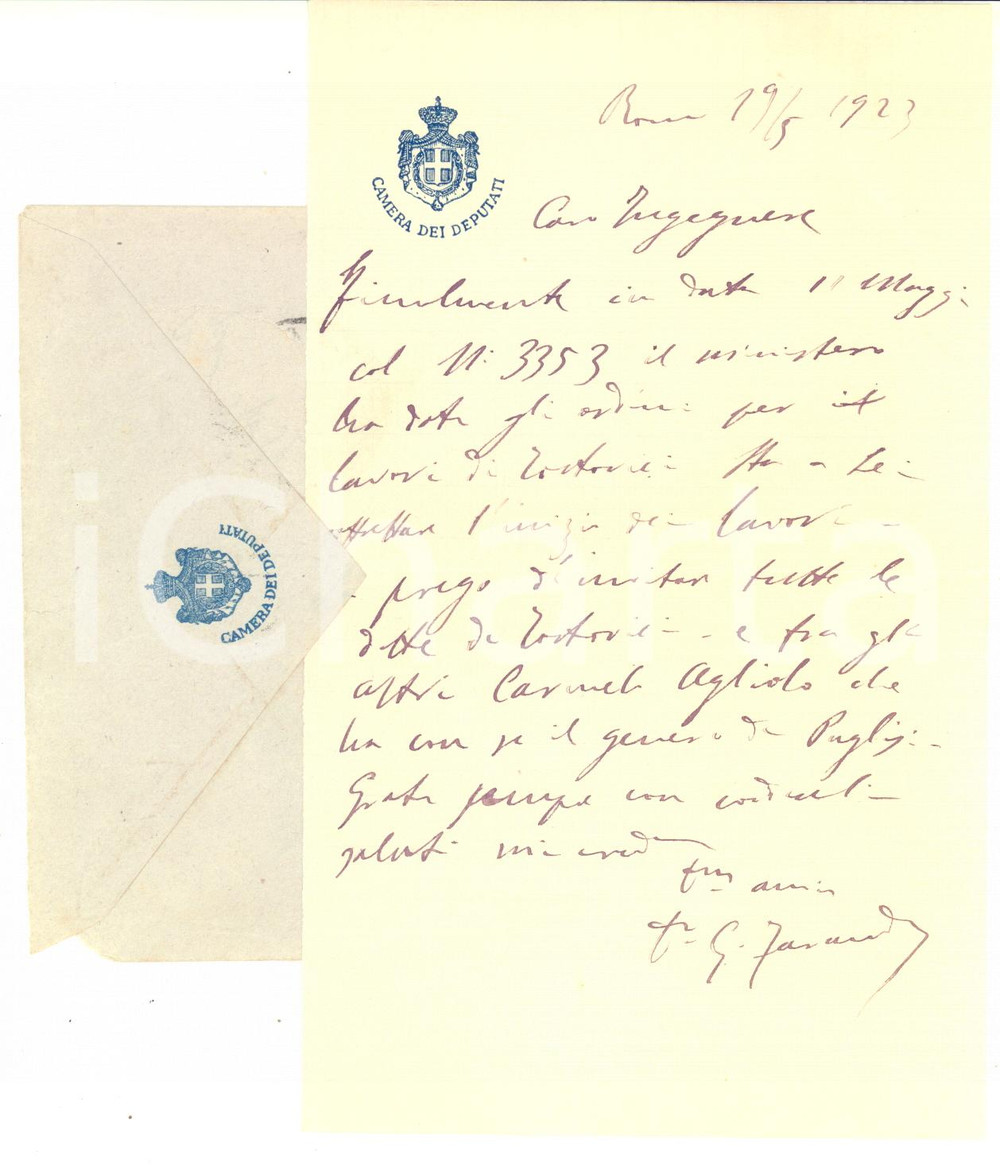 Roma 19/5 1923
CAMERA DEI DEPUTATI
Caro Ingegnere
Finalmente in data 11 Maggio
col N: 3353 il ministero
ha dato gli ordini per il
lavori di Tortorici Sta a Lei
affrettare l'inizio dei lavori
prego d'invitar tutte le
ditte di Tortorici e fra gli
altri Carmelo Agliolo che
ha con se il genero di Puglisi
Grato sempre con cordiali
saluti mi creda
amico
G.
CAMERA DEI DEPUTATI
iCharta